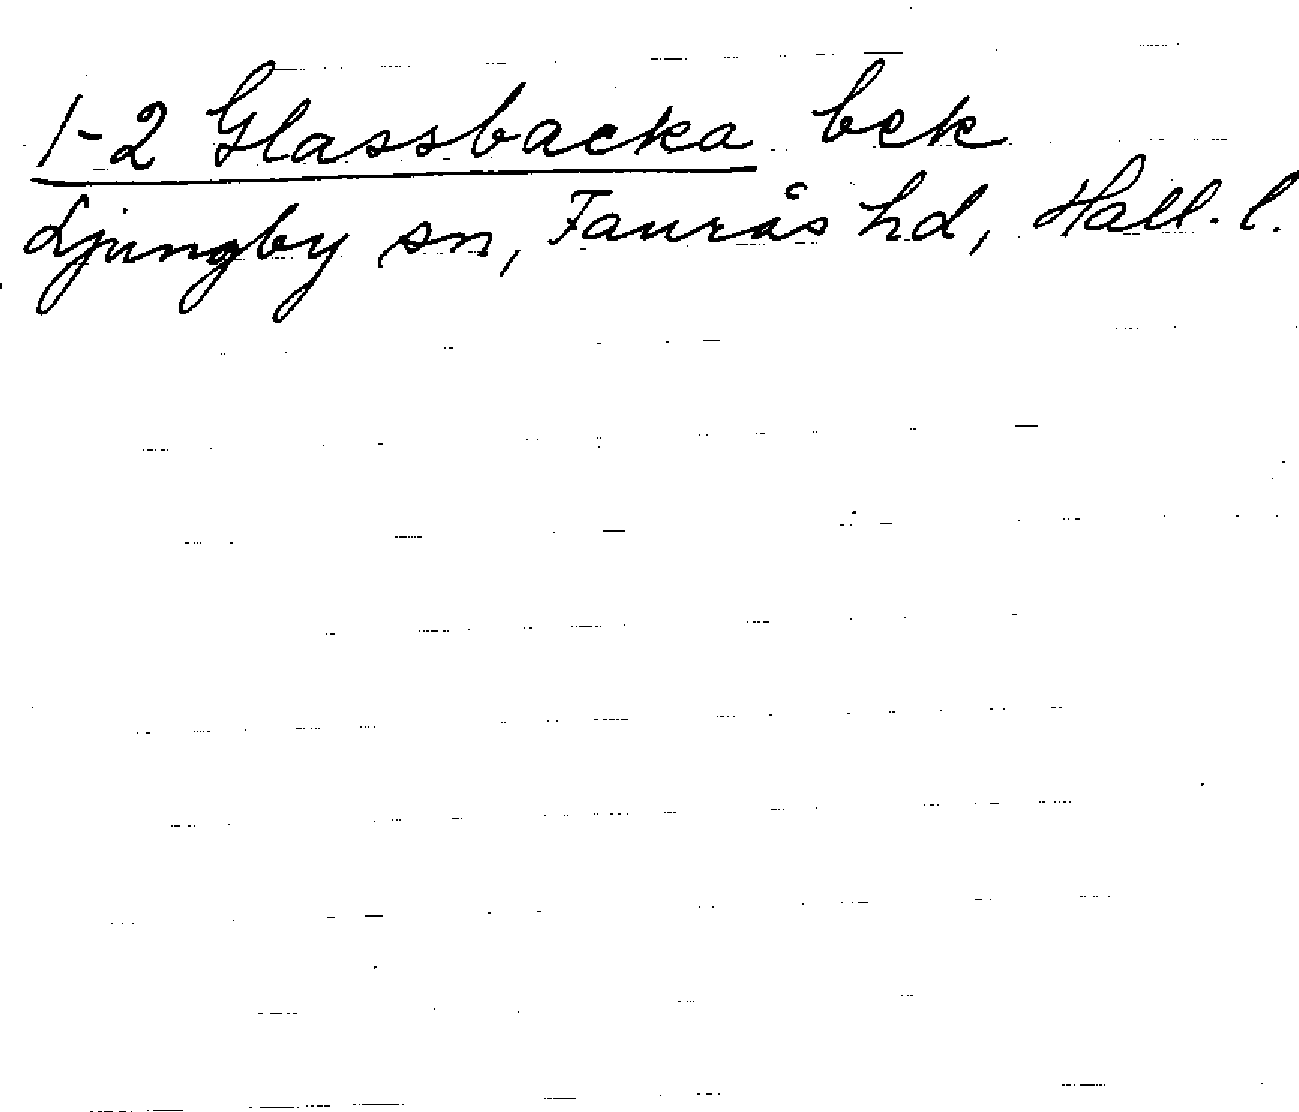 1-2 Glassbacka bek
Ljungby sn, Faurås hd, Hall. l.